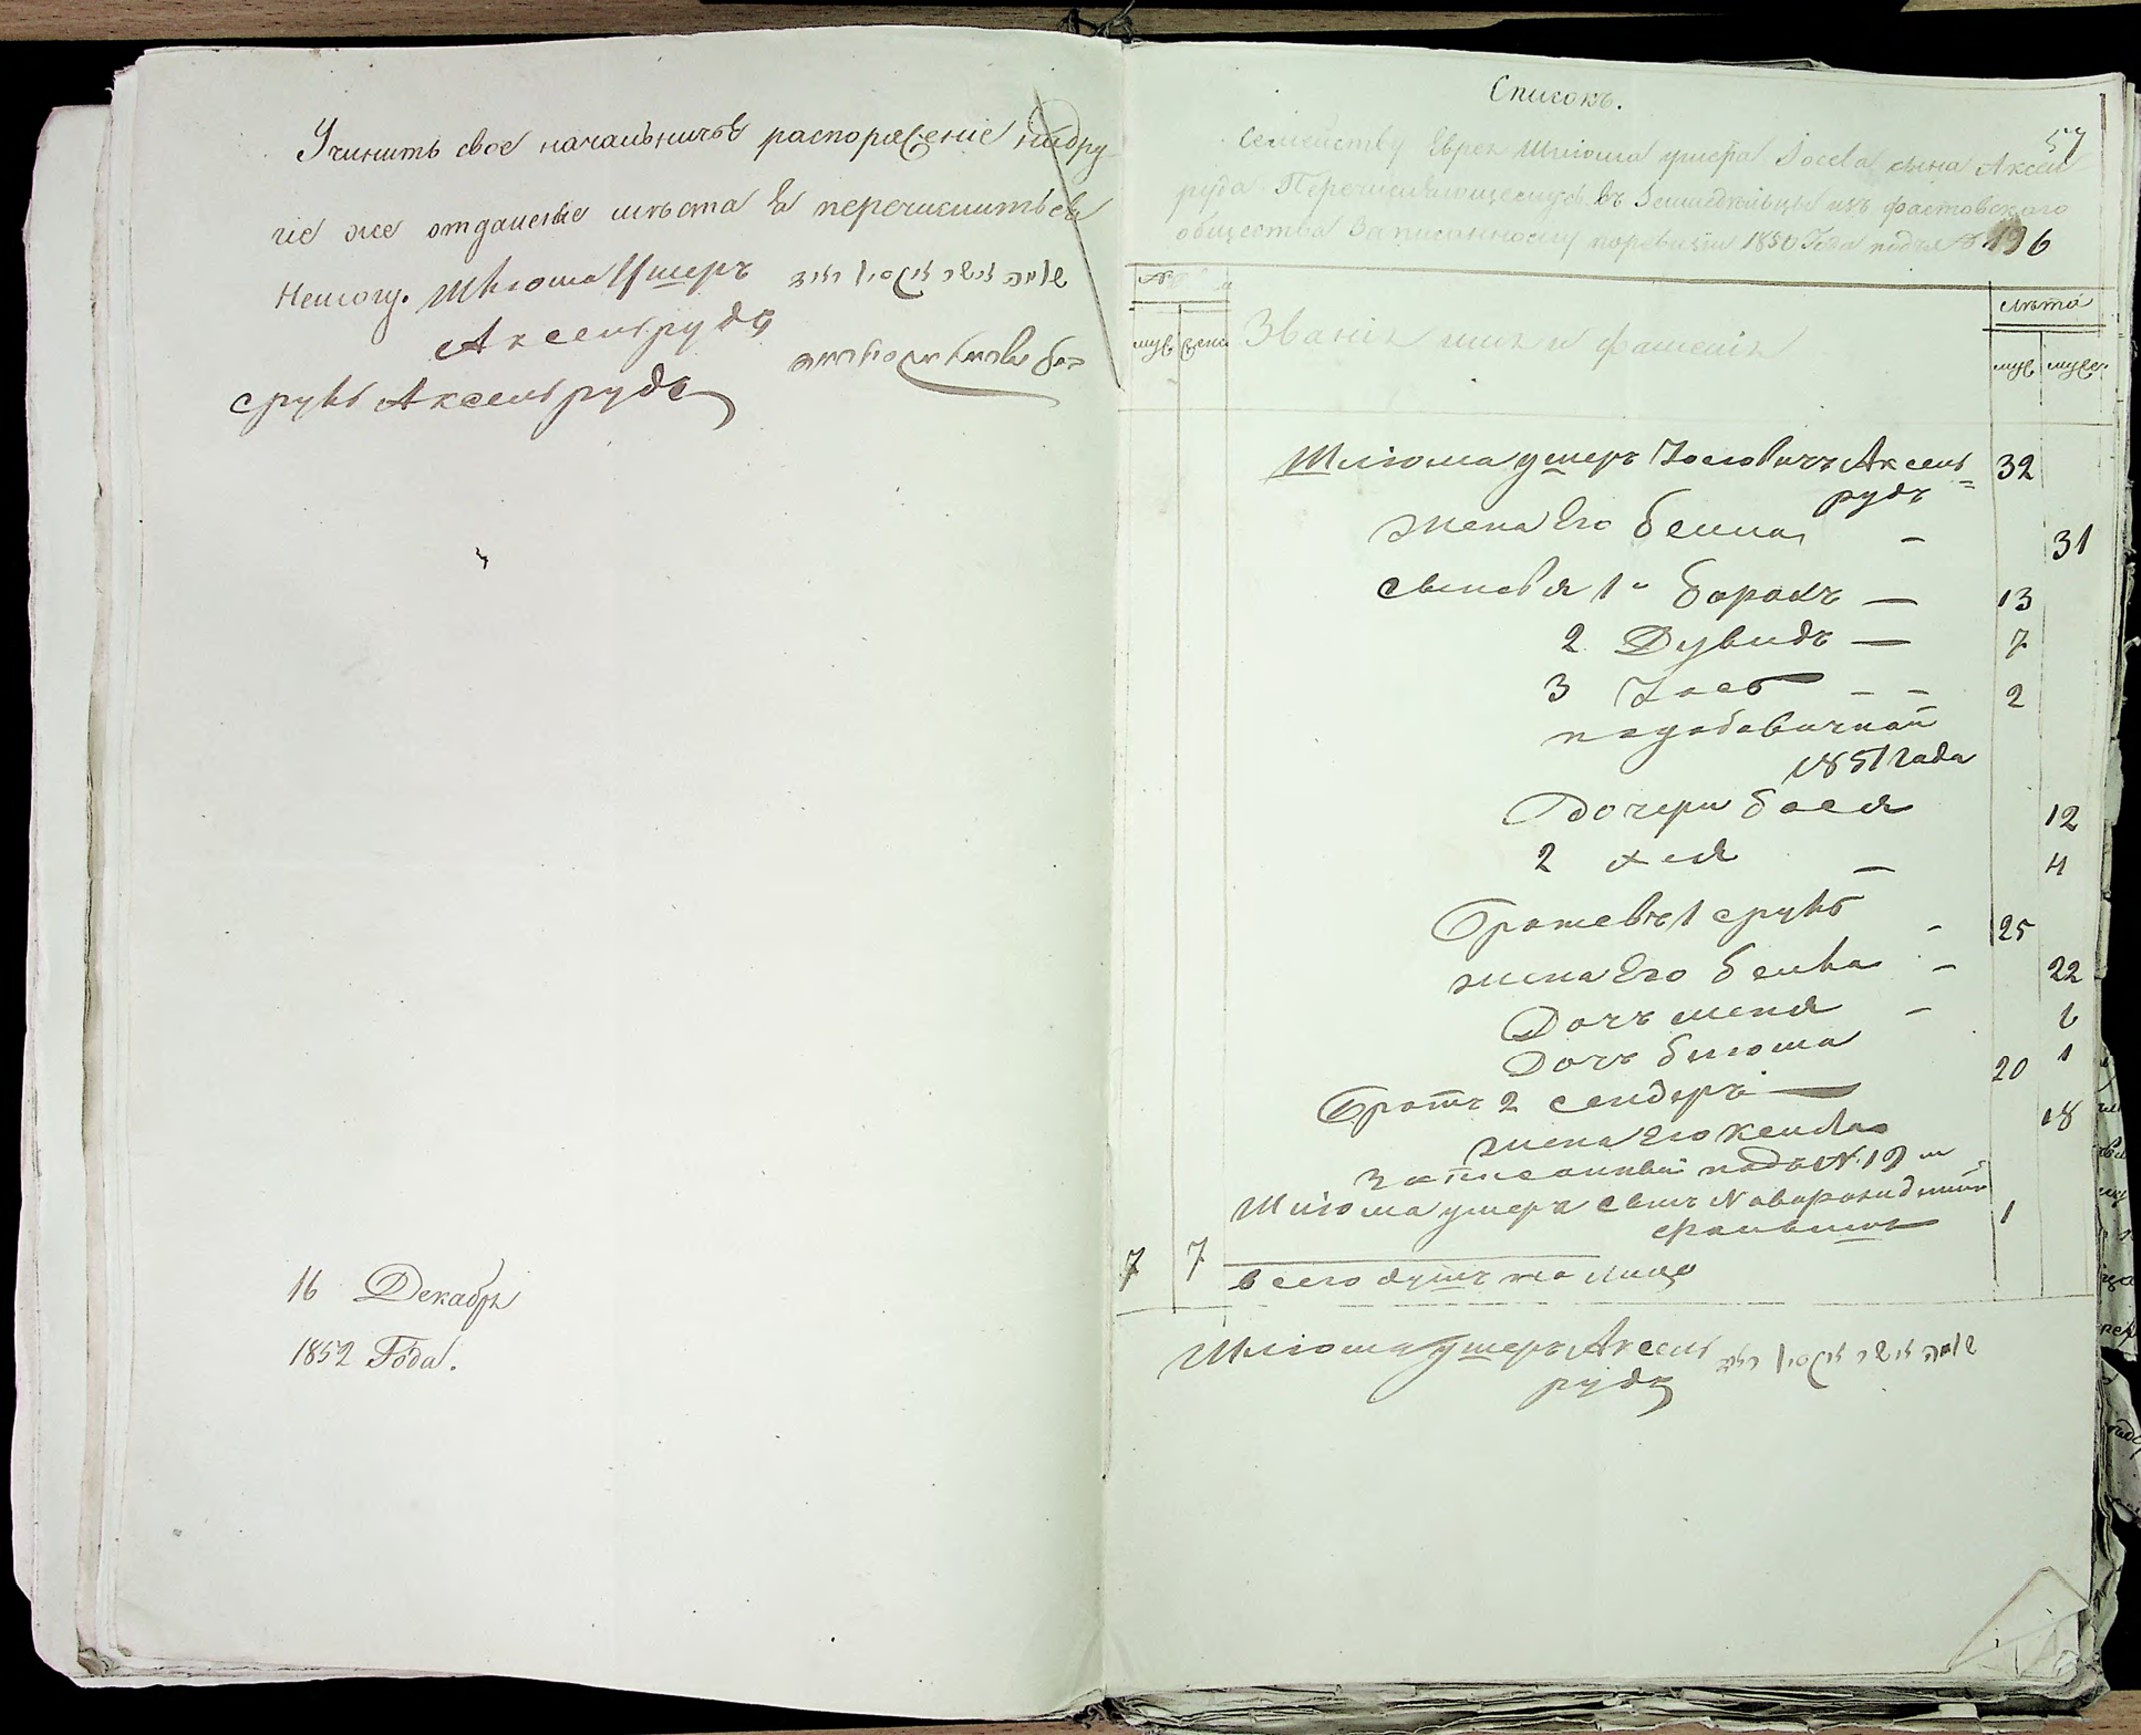 Учинить свое начальничое распоряженіе на дру
гіе же отдаленые мѣста Я перечислиться
Немогу. Шлиома Ушеръ
Аксельрудъ
Сруль Аксельрудъ
16 Декабря
1852 Года.
Списокъ.
57
Семейству Еврея Шлиома Ушера Іосева сына Аксель
руда Перечисляющемуся въ Земледельцы изъ Фастовского
общества Записанному поревизіи 1850 Года подъ № 196
№
муж жен Званія имя и фамилія
лѣта
муж
Шліома ушеръ Іосіовичъ Аксель= 32
рудъ
жена Его Бейла – 31
сыновья 1й Борохъ — 13
2 Дувидъ — 7
3 Іось – – 2
1851 года
Дочери Бася 12
2 Хая – 4
Братевъ 1 Сруль – 25
жена Его Бейла – 22
Дочъ – 6
Дочъ Блюма 1
Братъ 2 Сендеръ — 20
жена Его Кейла 18
Записанный подъ № 19
Шліома ушера сынъ Новорожденный
1
7 7 всего душъ на лицо
Шлиома Ушеръ Аксель שלמה אשר אקסילראד
рудъ